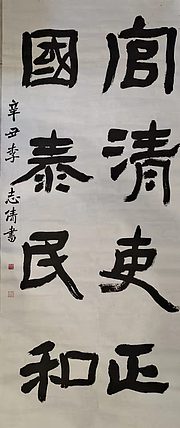 官清吏正
國泰民和
辛丑季
志清書